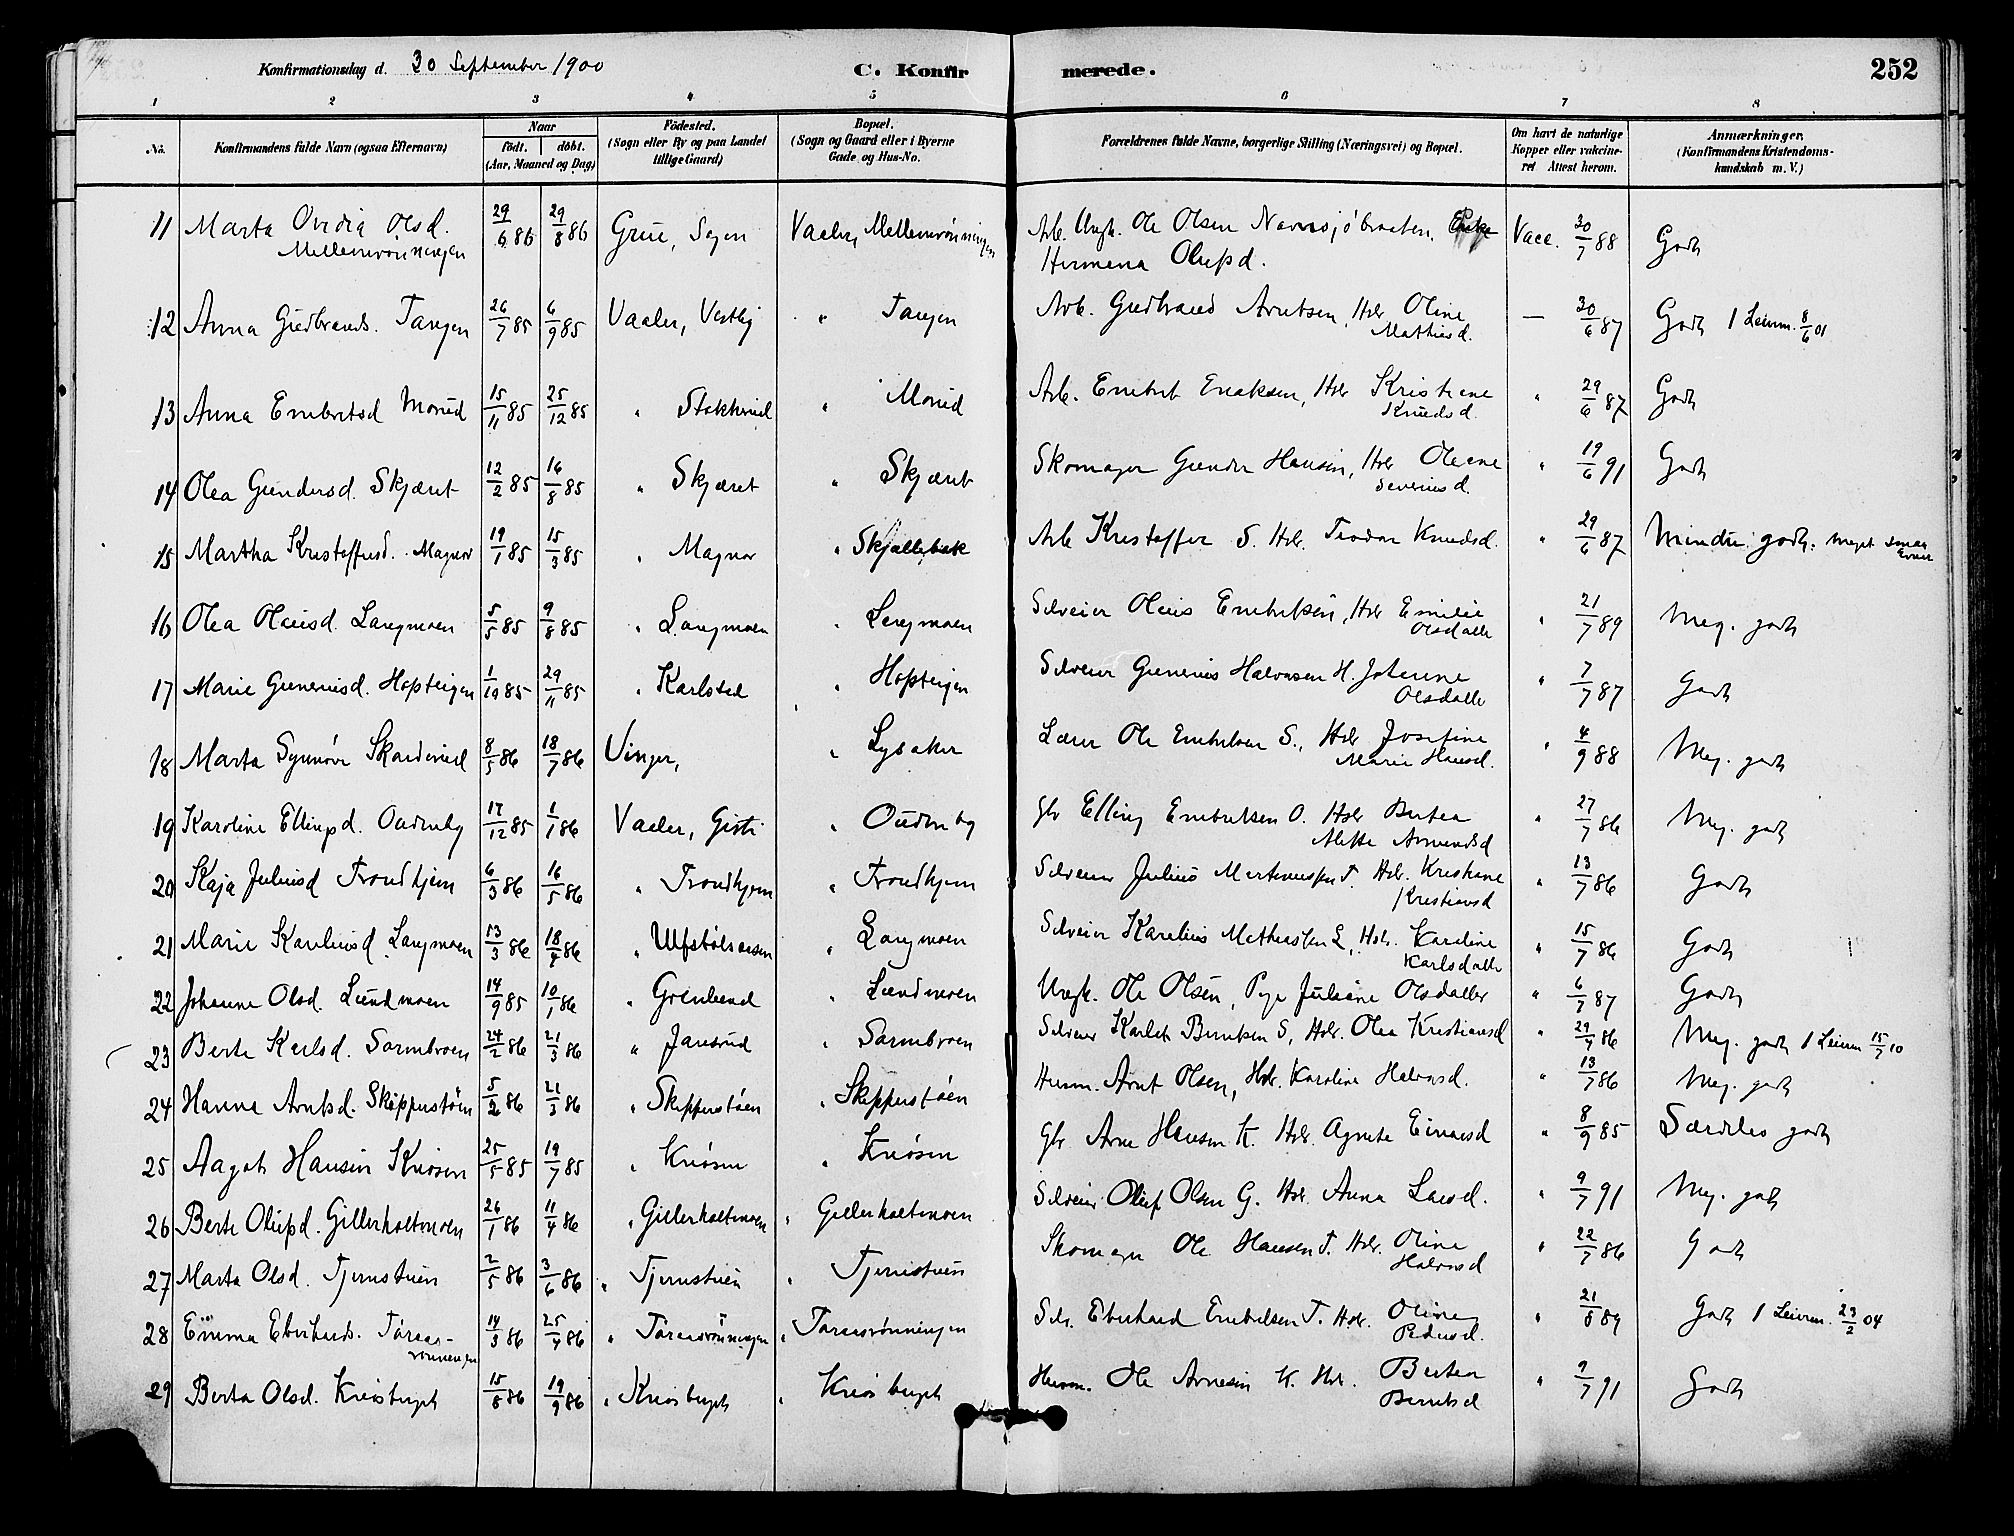 Konfirmationsdag d. 30 September 1900 C. Konfirmerede. 252
1 2 3 4 5 6 7 8
No. Konfirmandens fulde Navn (ogsaa Efternavn) Naar født. døbt. (Aar, Maaned og Dag) Fødested. (Sogn eller By og paa Landet tillige Gaard) Bopæl. (Sogn og Gaard eller i Byerne Gade og Hus-No. Forældrenes fulde Navne, borgerlige Stilling (Næringsvei) og Bopæl. Om havt de naturlige Kopper eller vakcineret Attest herom. Anmærkninger. (Konfirmandens Kristendomskundskab m. V.)
11 Marta Ovedia Olsd. Mellemrönningen 29/6 86 29/8 86 Grue, Vaaler, Mellemrönningen Arb. Ungk. Ole Olsen Hermena Olufsd. Vacc. 30/7 88 Godt
12 Anna Gudbrands. Tangen 26/7 85 6/9 85 Vaaler, Vestby " Tangen Arb. Gudbrand Arntsen, Hstr Oline Mathisd. — 30/6 87 Godt 1 Leirm. 8/6 01
13 Anna Embretsd Morud 15/11 85 25/12 85 " Stakkerud " Morud Arb. Embret Eriksen, Hstr Kristiane Knudsd. " 29/6 87 Godt
14 Olea Gundersd. Skjæret 12/2 85 16/8 85 " Skjæret " Skjæret Skomager Gunder Hansen, Hstr Oleane Severinsd. " 19/6 91 Godt
15 Martha Kristoffersd. Magnor 19/1 85 15/3 85 " Magnor " Skjællebæk Arb Kristoffer S. Hstr. Teodor Knudsd. " 29/6 87 Mindre godt. meget smaa Evner
16 Olea Olausd. Langmoen 5/5 85 9/8 85 " Langmoen " Langmoen Selveier Olaus Embretsen, Hstr Emilie Olsdatter " 21/7 89 Meg. godt
17 Marie Gunerusd. Hofsteigen 1/10 85 29/11 85 " Karlstad " Hofsteigen Selveier Gunerius Halvorsen H. Johanne Olsdatter " 7/7 87 Godt
18 Marta Synnøve Skarderud 8/5 86 18/7 86 Vinger, " Lysaker Lærer Ole Embretsen S., Hstr Josefine Marie Hansd. " 4/9 88 Meg. godt
19 Karoline Ellingsd. Oudenby 17/12 85 1/1 86 Vaaler, " Oudenby Gbr Elling Embretsen O. Hstr Bertea Mette Amundsd " 27/7 86 Meg. godt
20 Kaja Juliusd Trondhjem 6/3 86 16/5 86 " Trondhjem " Trondhjem Selveier Julius Martinussen T. Hstr. Kristiane Kristiansd " 13/7 86 Godt
21 Marie Kareliusd. Langmoen 13/3 86 18/4 86 " Ulfstølaasen " Langmoen Selveier Karelius Mathiassen L., Hstr. Karoline Karlsdatter " 15/7 86 Godt
22 Johanne Olsd. Lundmoen 14/9 85 10/1 86 " Grenland " Lundmoen Ungk. Ole Olsen, Pige Juliane Olsdatter " 6/7 87 Godt
23 Berte Karlsd. Sormbroen 24/2 86 21/3 86 " Jansrud " Sormbroen Selveier Karl Berntsen S, Hstr. Olea Kristiansd " 29/7 86 Meg. godt 1 Leirm 15/7 10
24 Hanne Arntsd. Skepperstøen 5/2 86 21/3 86 " Skepperstøen " Skepperstøen Husm. Arnt Olsen, Hstr. Karoline Halvorsd. " 13/7 86 Meg. godt
25 Aagot Hansen Knøsen 25/5 85 19/7 85 " Knøsen " Knøsen Gbr Arne Hansen K. Hstr. Agnete Einarsd " 8/9 85 Særdeles godt
26 Berte Olufsd. Gillerholtmoen 26/1 86 11/4 86 " Gillerholtmoen " Gillerholtmoen Selveier Oluf Olsen G. Hstr Anna Larsd. " 9/7 91 Meg. godt
27 Marta Olsd. Tjernstuen 2/5 86 3/6 86 " Tjernstuen " Tjernstuen Skomager Ole Hansen T. Hstr. Oline Halvorsd " 22/7 86 Godt
28 Emma Eberhards. Toraasrönningen 14/3 86 25/4 86 " Toraasrönningen " Toraasrönningen Selv. Eberhard Embretsen T. Hstr. Oline Pedersd. " 21/8 89 Godt 1 Leirm. 23/2 04
29 Berta Olsd. Knøsberget 15/8 86 19/9 86 " Knøsberget " Knøsberget Husm. Ole Arnesen K. Hstr. Bertea Berntsd " 9/7 91 Godt